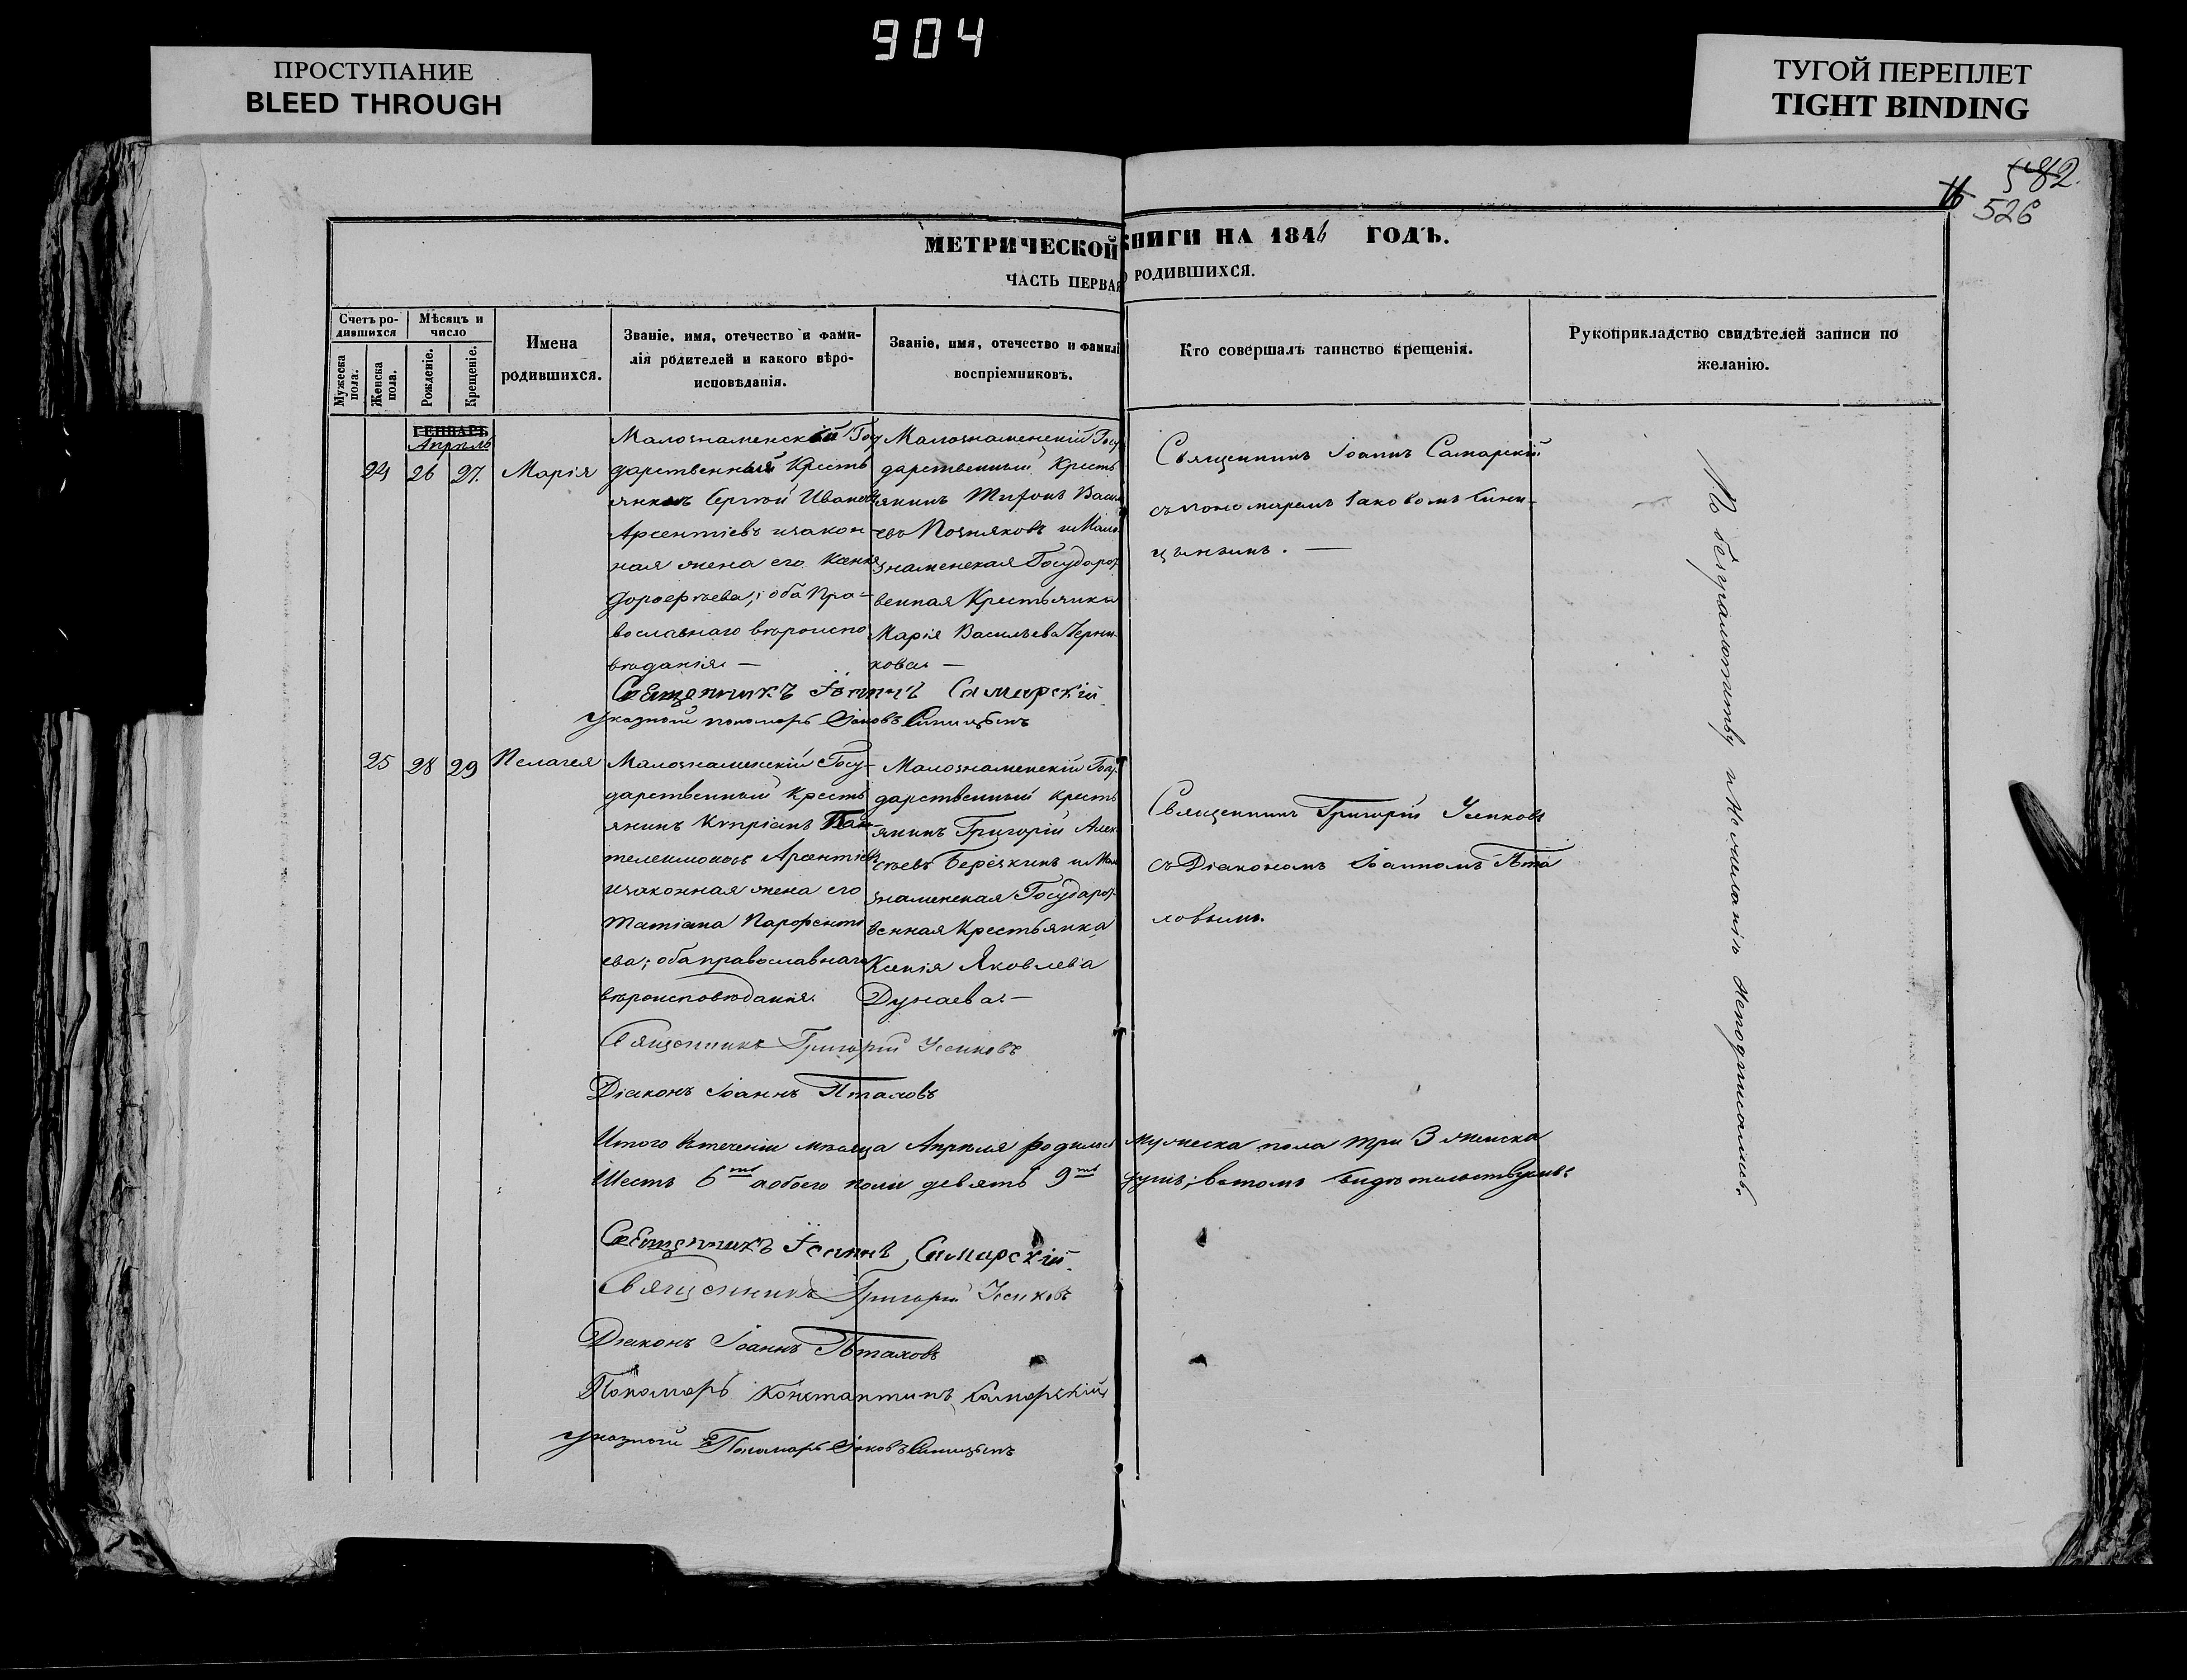 904
ПРОСТУПАНИЕ
BLEED THROUGH
ТУГОЙ ПЕРЕПЛЕТ
TIGHT BINDING
16
582.
526
МЕТРИЧЕСКОЙ КНИГИ НА 1846 ГОДЪ.
ЧАСТЬ ПЕРВАЯ О РОДИВШИХСЯ.
Счетъ ро-
дившихся
Мужеска пола.
Женска пола.
Мѣсяцъ и
число
Рожденіе.
Крещеніе.
Имена
родившихся.
Званіе, имя, отечество и фами-
лія родителей и какого вѣро-
исповѣданія.
Званіе, имя, отечество и фамилі
воспріемниковъ.
Кто совершалъ таинство крещенія.
Рукоприкладство свидѣтелей записи по
желанію.
ГЕНВАРЬ
Апрѣль
24 26 27. Марія
Малознаменскій Госу
дарственный Кресть
янинъ Сергѣй Ивановъ
Арсентіевъ изакон
ная жена его Ксенія
Дорофѣева; оба Пра-
вославнаго вѣроиспо
вѣданія. —
Малознаменскій Госу
дарственный Кресть
янинъ Тифонъ Васил
евъ Позняковъ и Мало
знаменская Государст
венная Крестьянка
Марія Васильева Черни-
кова —
Священникъ Іоаннъ Самарскій
съ пономаремъ Іаковомъ Сини-
цынымъ. —
Священникъ Іоаннъ Самарскій
Указной пономарь Іаковъ Синицынъ
25 28 29 Пелагея
Малознаменскій Госу-
дарственный Кресть
янинъ Кипріанъ Пан-
телеимоновъ Арсентіевъ
изаконная жена его
Татіана Парфенті
ева; оба православнаго
вѣроисповѣданія.
Малознаменскій Госу
дарственный Кресть
янинъ Григорій Алек
сѣевъ Берёзкинъ и Мало
знаменская Государст
венная Крестьянка
Ксенія Яковлева
Дунаева. —
Священникъ Григорій Усиковъ
съ Діакономъ Іоанномъ Пта
ловымъ.
Священникъ Григорій Усиковъ
Діаконъ Іоаннъ Пталовъ
По безграмотству и Нежиланію Неподписались.
Итого Втеченіи мѣсяца Апрѣля родилось мужеска пола три 3 женска
Шесть 6ть аобоего пола девять 9ть душъ; вотомъ Свидѣтельствуемъ
Священникъ Іоаннъ Самарскій
Священникъ Григорій Усиковъ
Діаконъ Іоаннъ Пталовъ
Пономарь Константинъ Самарскій
Указной Пономарь Іаковъ Синицынъ